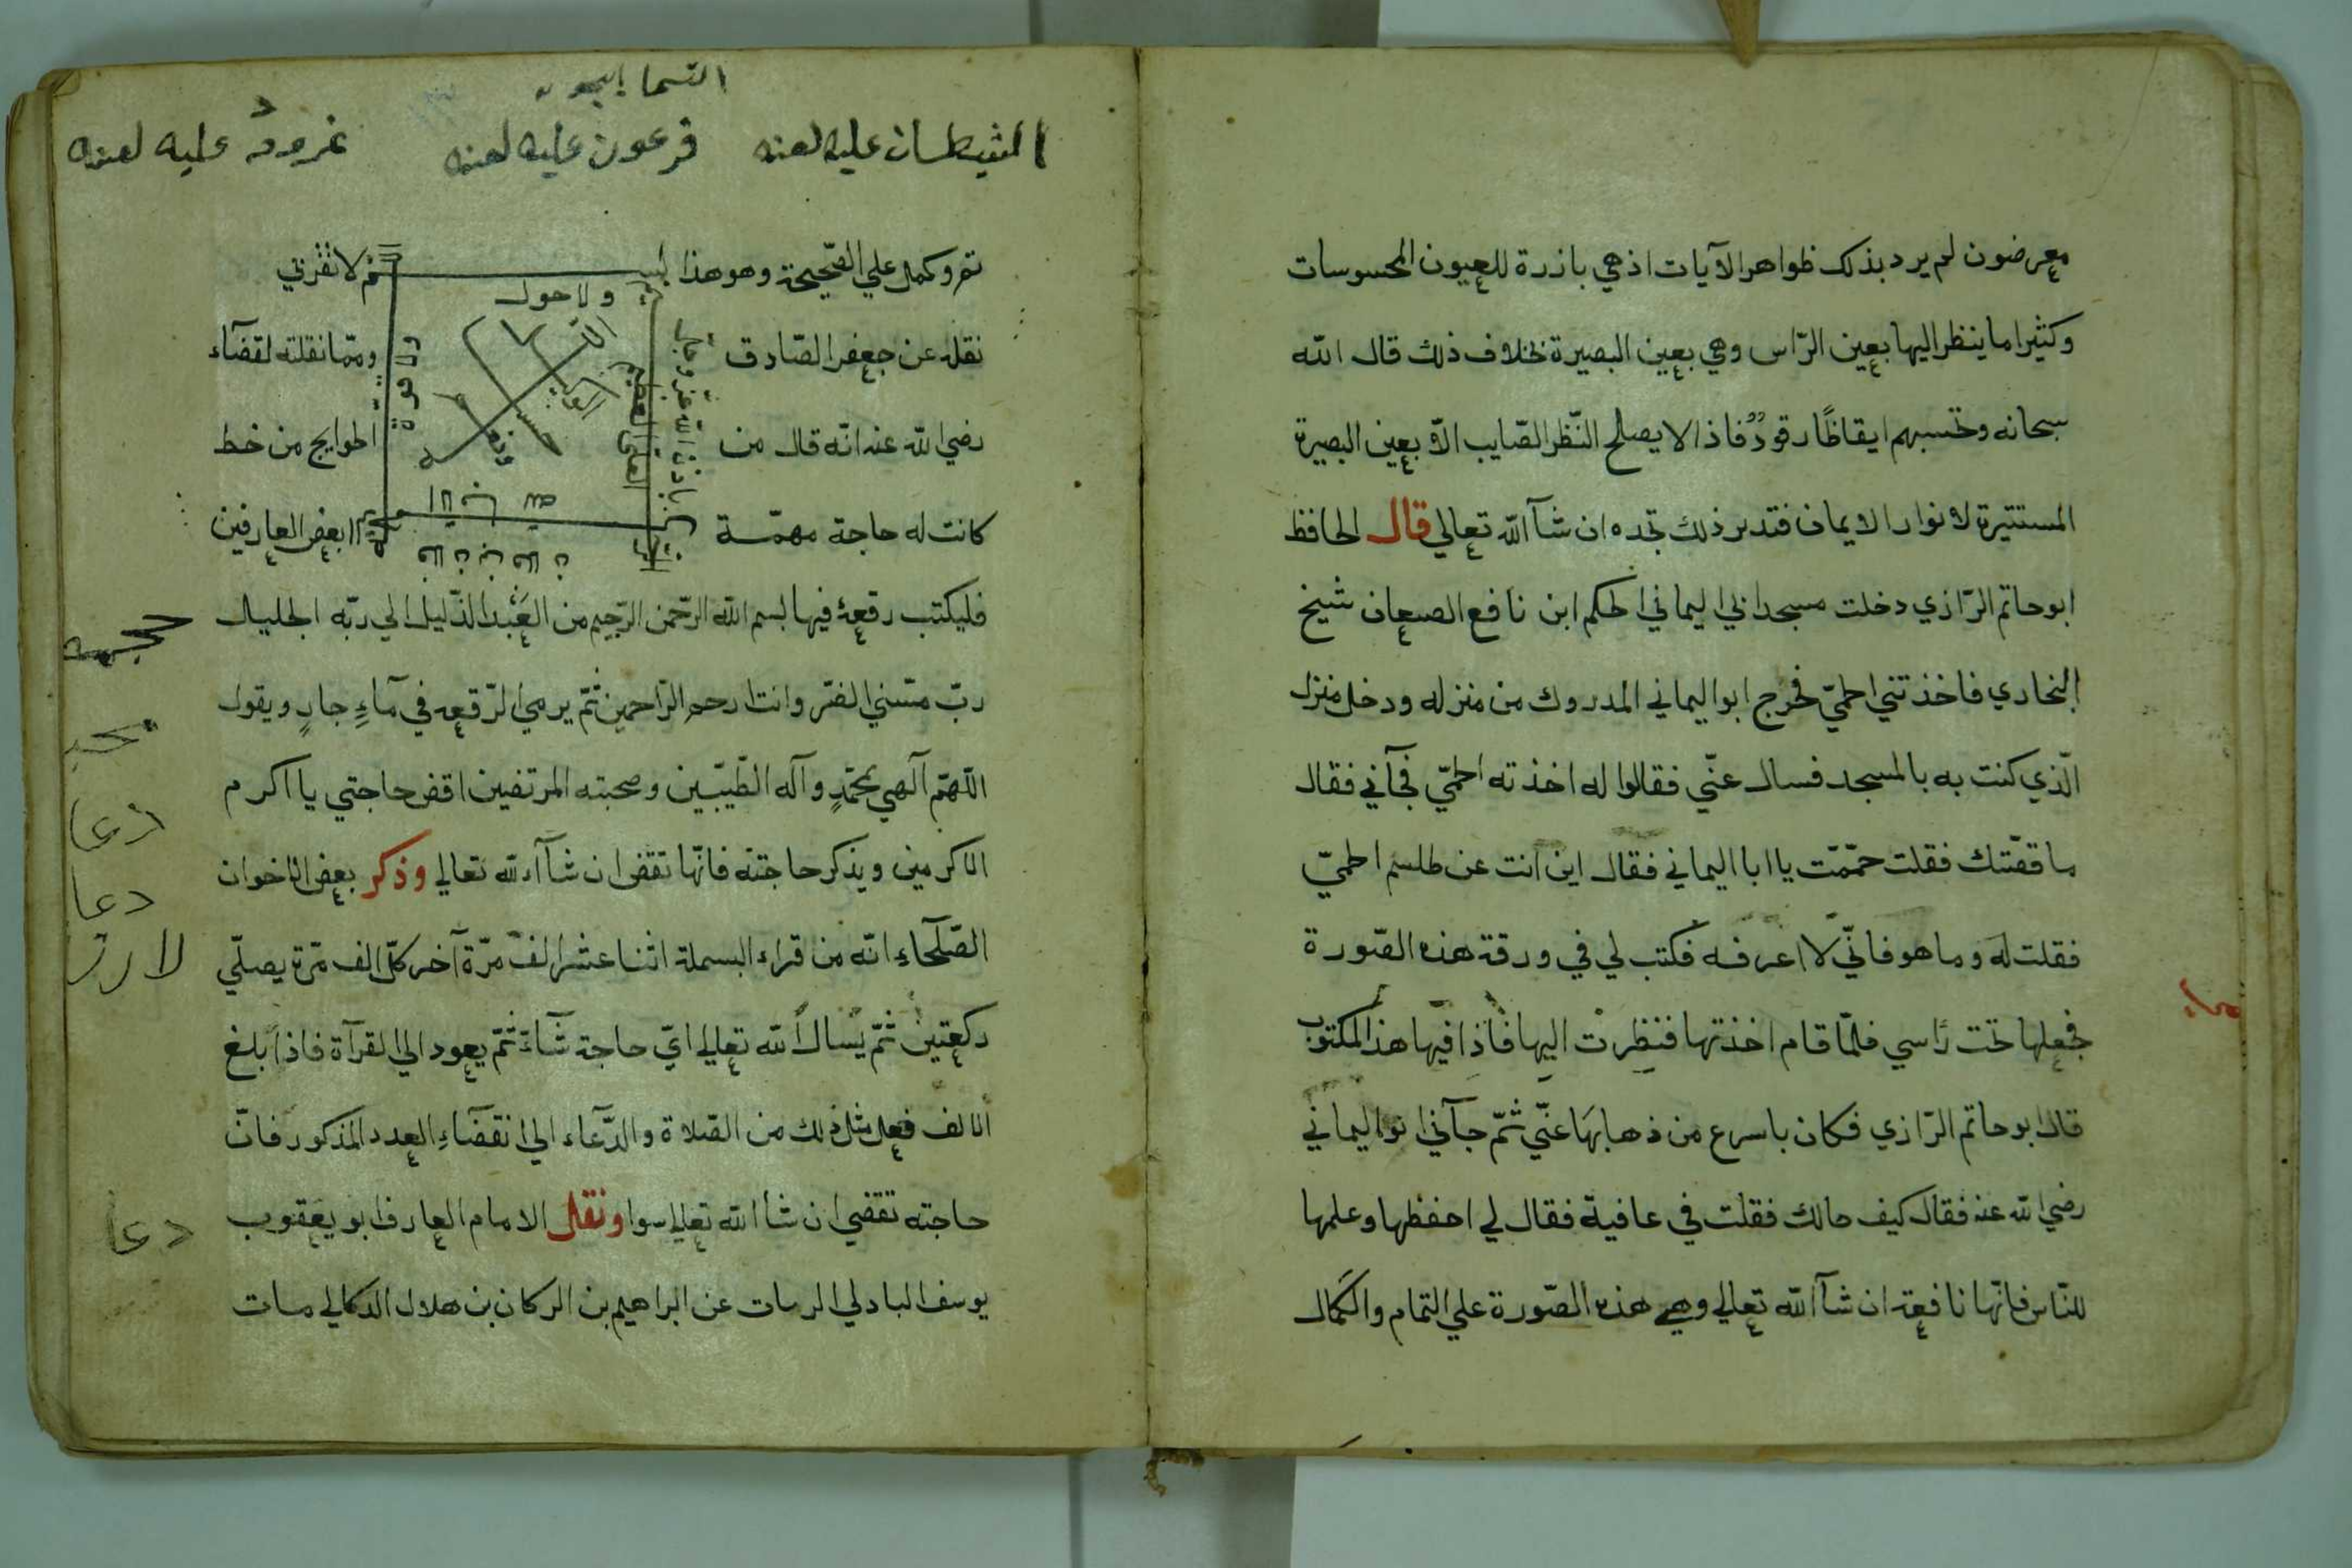 معرضون لم يرد بذلك ظواهر الآيات اذ هي باذرة للعيون المحسوسات
وكثيرا ما ينظر اليها بعين الرّاس وهي بعين البصيرة بخلاف ذلك قال الله
سبحانه وتحسبهم ايقاظًا رقودٌ فاذا لا يصلح النّظر الصّايب الّا بعين البصيرة
المستنيرة لانوار الايمان فتدبر ذلك تجده ان شآ الله تعالي قال الحافظ
ابو حاتم الرّازي دخلت مسجد ابي اليماني الحكم ابن نافع الصنعان شيخ
البخاري فاخذتني الحمّي فخرج ابو اليماني المدروك من منزله ودخل منزل
الّذي كنت به بالمسجد فسال عنّي فقالوا له اخذته الحمّي فجآني فقال
ما قصّتك فقلت حمّمت يا ابا اليماني فقال اين انت عن طلسم الحمّي
فقلت له وما هو فانّي لا اعرفه فكتب لي في ورقة هذه الصّورة
فجعلها تحت رأسي فلمّا قام اخذتها فنظرت اليها فاذا فيها هذا المكتوب
قال ابو حاتم الرّازي فكان باسرع من ذهابها عنّي ثمّ جآني ابو اليماني
رضي الله عنه فقال كيف حالك فقلت في عافية فقال لي احفظها وعلمها
للنّاس فانّها نافعة ان شآ الله تعالي وهي هذه الصّورة علي التمام والكمال
الشيطان عليه لعنه فرعون عليه لعنه نمرود عليه لعنه
تم وكمل علي الصّحيحة وهو هذا
ولا حول
نقله عن جعفر الصّادق
وممّا نقلته لقضآء
رضي الله عنه انّه قال من
الحوايج من خط
كانت له حاجة مهمّة
بعض العارفين
باذن الله عزّ وجلّ
العلي العظيم
فليكتب رقعة فيها بسم الله الرّحمن الرّحيم من العبد الذّليل الي ربّه الجليل
ربّ مسّني الضّر وانت ارحم الرّاحمين ثمّ يرمي الرّقعه في مآءٍ جارٍ ويقول
اللّهمّ الهي بمحمّدٍ وآله الطّيّبين وصحبته المرتضين اقض حاجتي يا اكرم
الاكرمين ويذكر حاجته فانّها تقضي ان شآء الله تعالي وذكر بعض الاخوان
الصّلحآء انّه من قراء البسملة اثنا عشر الف مرّة آخر كلّ الف مرّة يصلّي
ركعتين ثمّ يسال الله تعالي ايّ حاجة شآء ثمّ يعود الي القرآة فاذا بلغ
الالف فعل مثل ذلك من الصّلاة والدّعاء الي انقضآء العدد المذكور فانّ
حاجته تقضي ان شا الله تعالي سوا ونقل الامام العارف ابو يعقوب
يوسف البادلي الرسات عن ابراهيم بن الركان بن هلال الدكالي مات
دعا
دعا
دعا